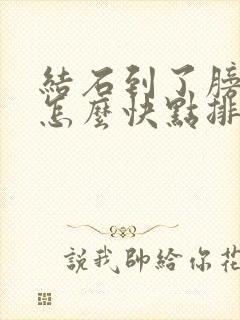 結石到了膀
怎麼快點排
說我帥給你花